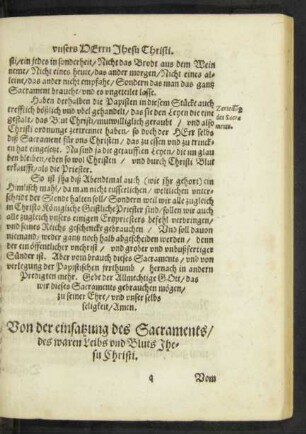 vnsers HErrn Jhesu Christi.
sti / ein jedes in sonderheit / Nicht das Brodt aus dem Wein
neme / Nicht einen heut / das ander morgen / Nicht eines al-
leine / das ander nicht empfahe / Sondern das man das gantz
Sacrament braucht / vnd es vngeteilet lasse.
Haben derhalben die Papisten in diesem Stücke auch
trefflich böslich vnd vbel gehandelt / das sie den Leyen die eine
gestalt / das Blut Christi / mutwilliglich geraubt / vnd also
Christi ordnunge zertrennet haben / so doch der HErr selbs
dis Sacrament für vns Christen / das zu essen vnd zu trincken
hat eingesetzt. Nu sind ja die getaufften Leyen / die im glau
ben bleiben / eben so wol Christen / vnd durch Christi Blut
erkaufft / als die Priester.
So ist jha diß Abendtmal auch (wie jhr gehört) ein
Himlisch mahl / da man nicht eusserlichen / weltlichen vnter-
scheidt der Stende halten soll / Sondern weil wir alle zugleich
in Christo Königliche Geistliche Priester sind / sollen wir auch
alle zugleich vnsers einigen Ertzpriesters befehl verbringen /
vnd seines Reichs geschencke gebrauchen / Vnd soll dauon
niemand / weder gantz noch halb abgescheiden werden / denn
der ein öffentlicher vnchrist / vnd grober vnd vnbußfertiger
Sünder ist. Aber vom brauch dieses Sacraments / vnd von
verlegung der Papistischen jrrthumb / hernach in andern
Predigten mehr. Gebe der Allmechtige Gott / das
wir dieses Sacraments gebrauchen mögen /
zu seiner Ehre / vnd vnser selbs
seligkeit / Amen.
Von der einsatzung des Sacraments /
des waren Leibs vnd Bluts Jhe-
su Christi.
q Vom